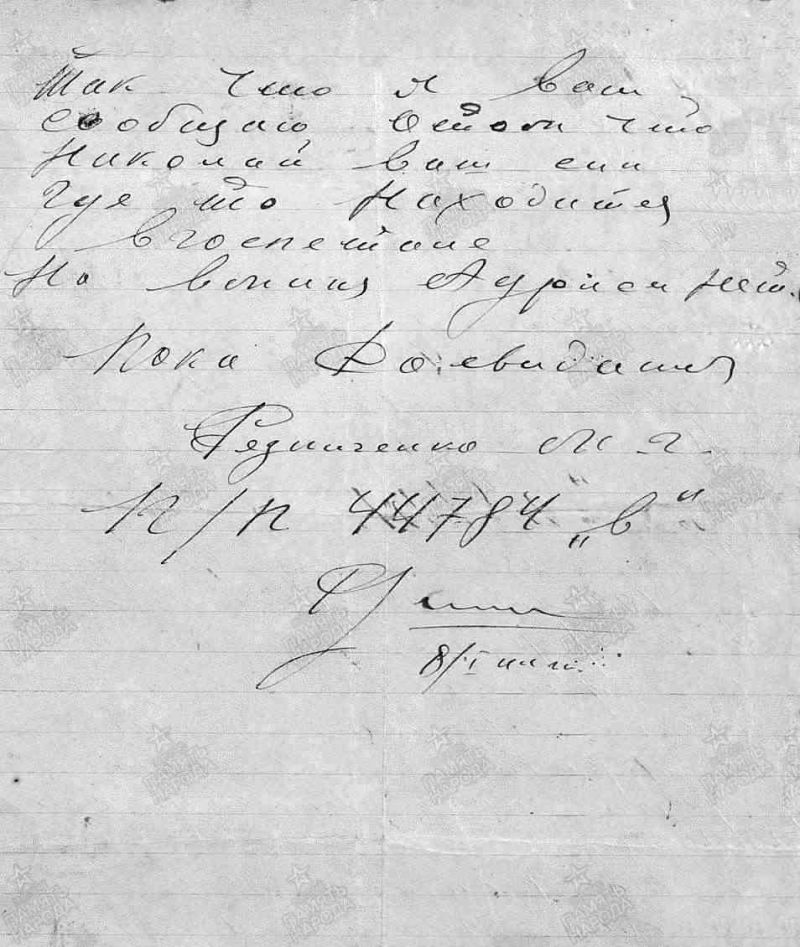 Так что я вам
сообщаю о том что
Николай ваш сын
где то находится
в госпетале
На воина Адрисы нет.
Пока Досвидания
Резниченко М. Г.
П/п 44784 „в"
8/I